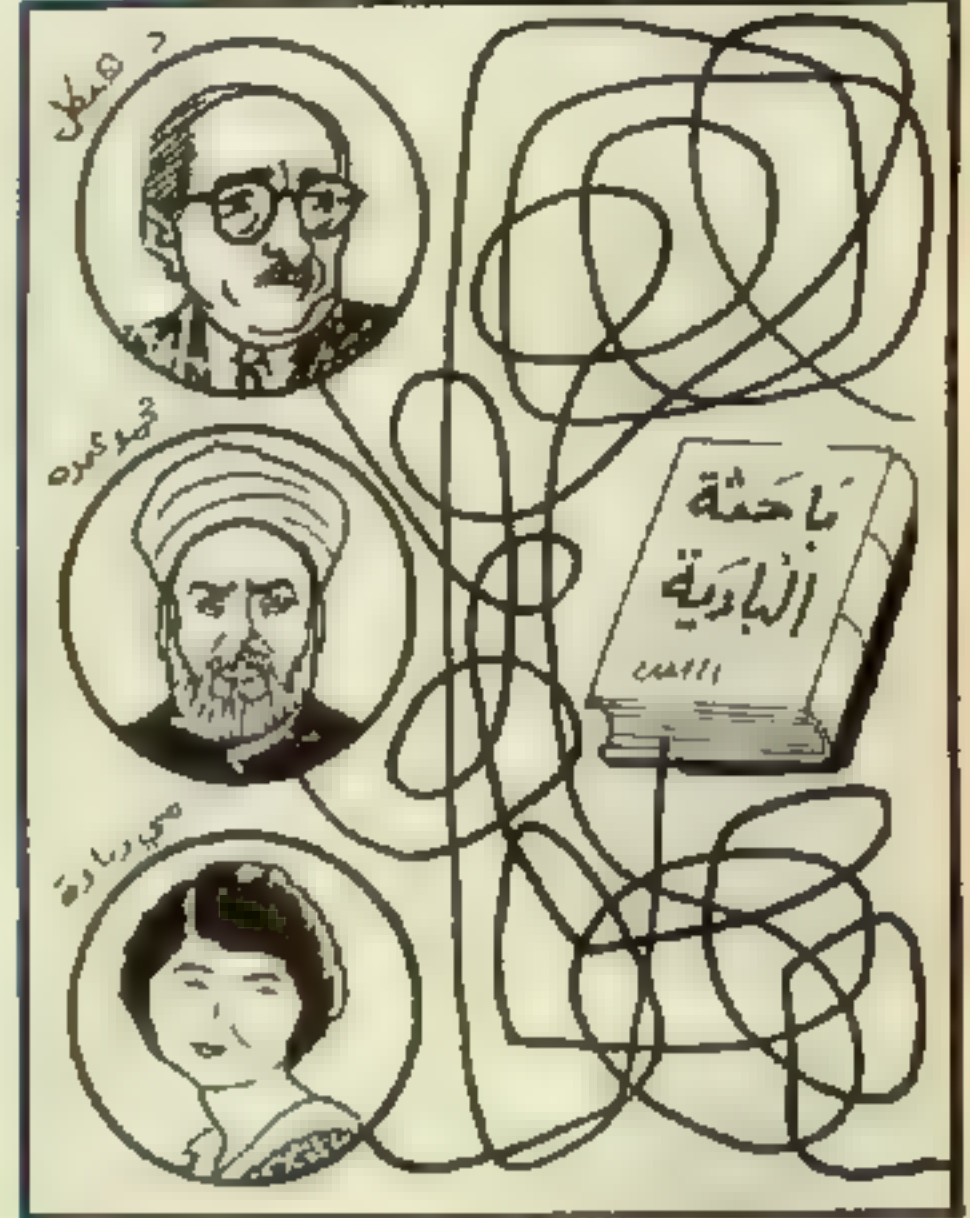 هيكل
محمد عبده
مي زيادة
بَاحِثَة
الْبَادِيَة